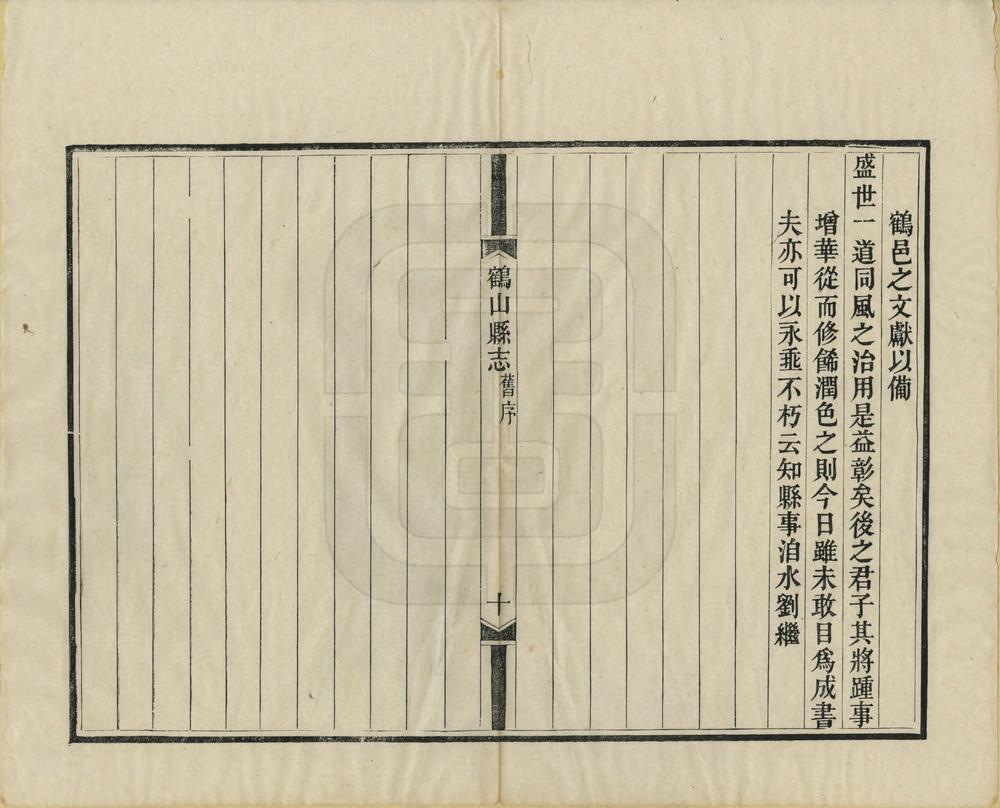 鶴邑之文獻以備
盛世一道同風之治用是益彰矣後之君子其將踵事
增華從而修餙潤色之則今日雖未敢目爲成書
夫亦可以永垂不朽云知縣事洎水劉繼
鶴山縣志
舊序
十